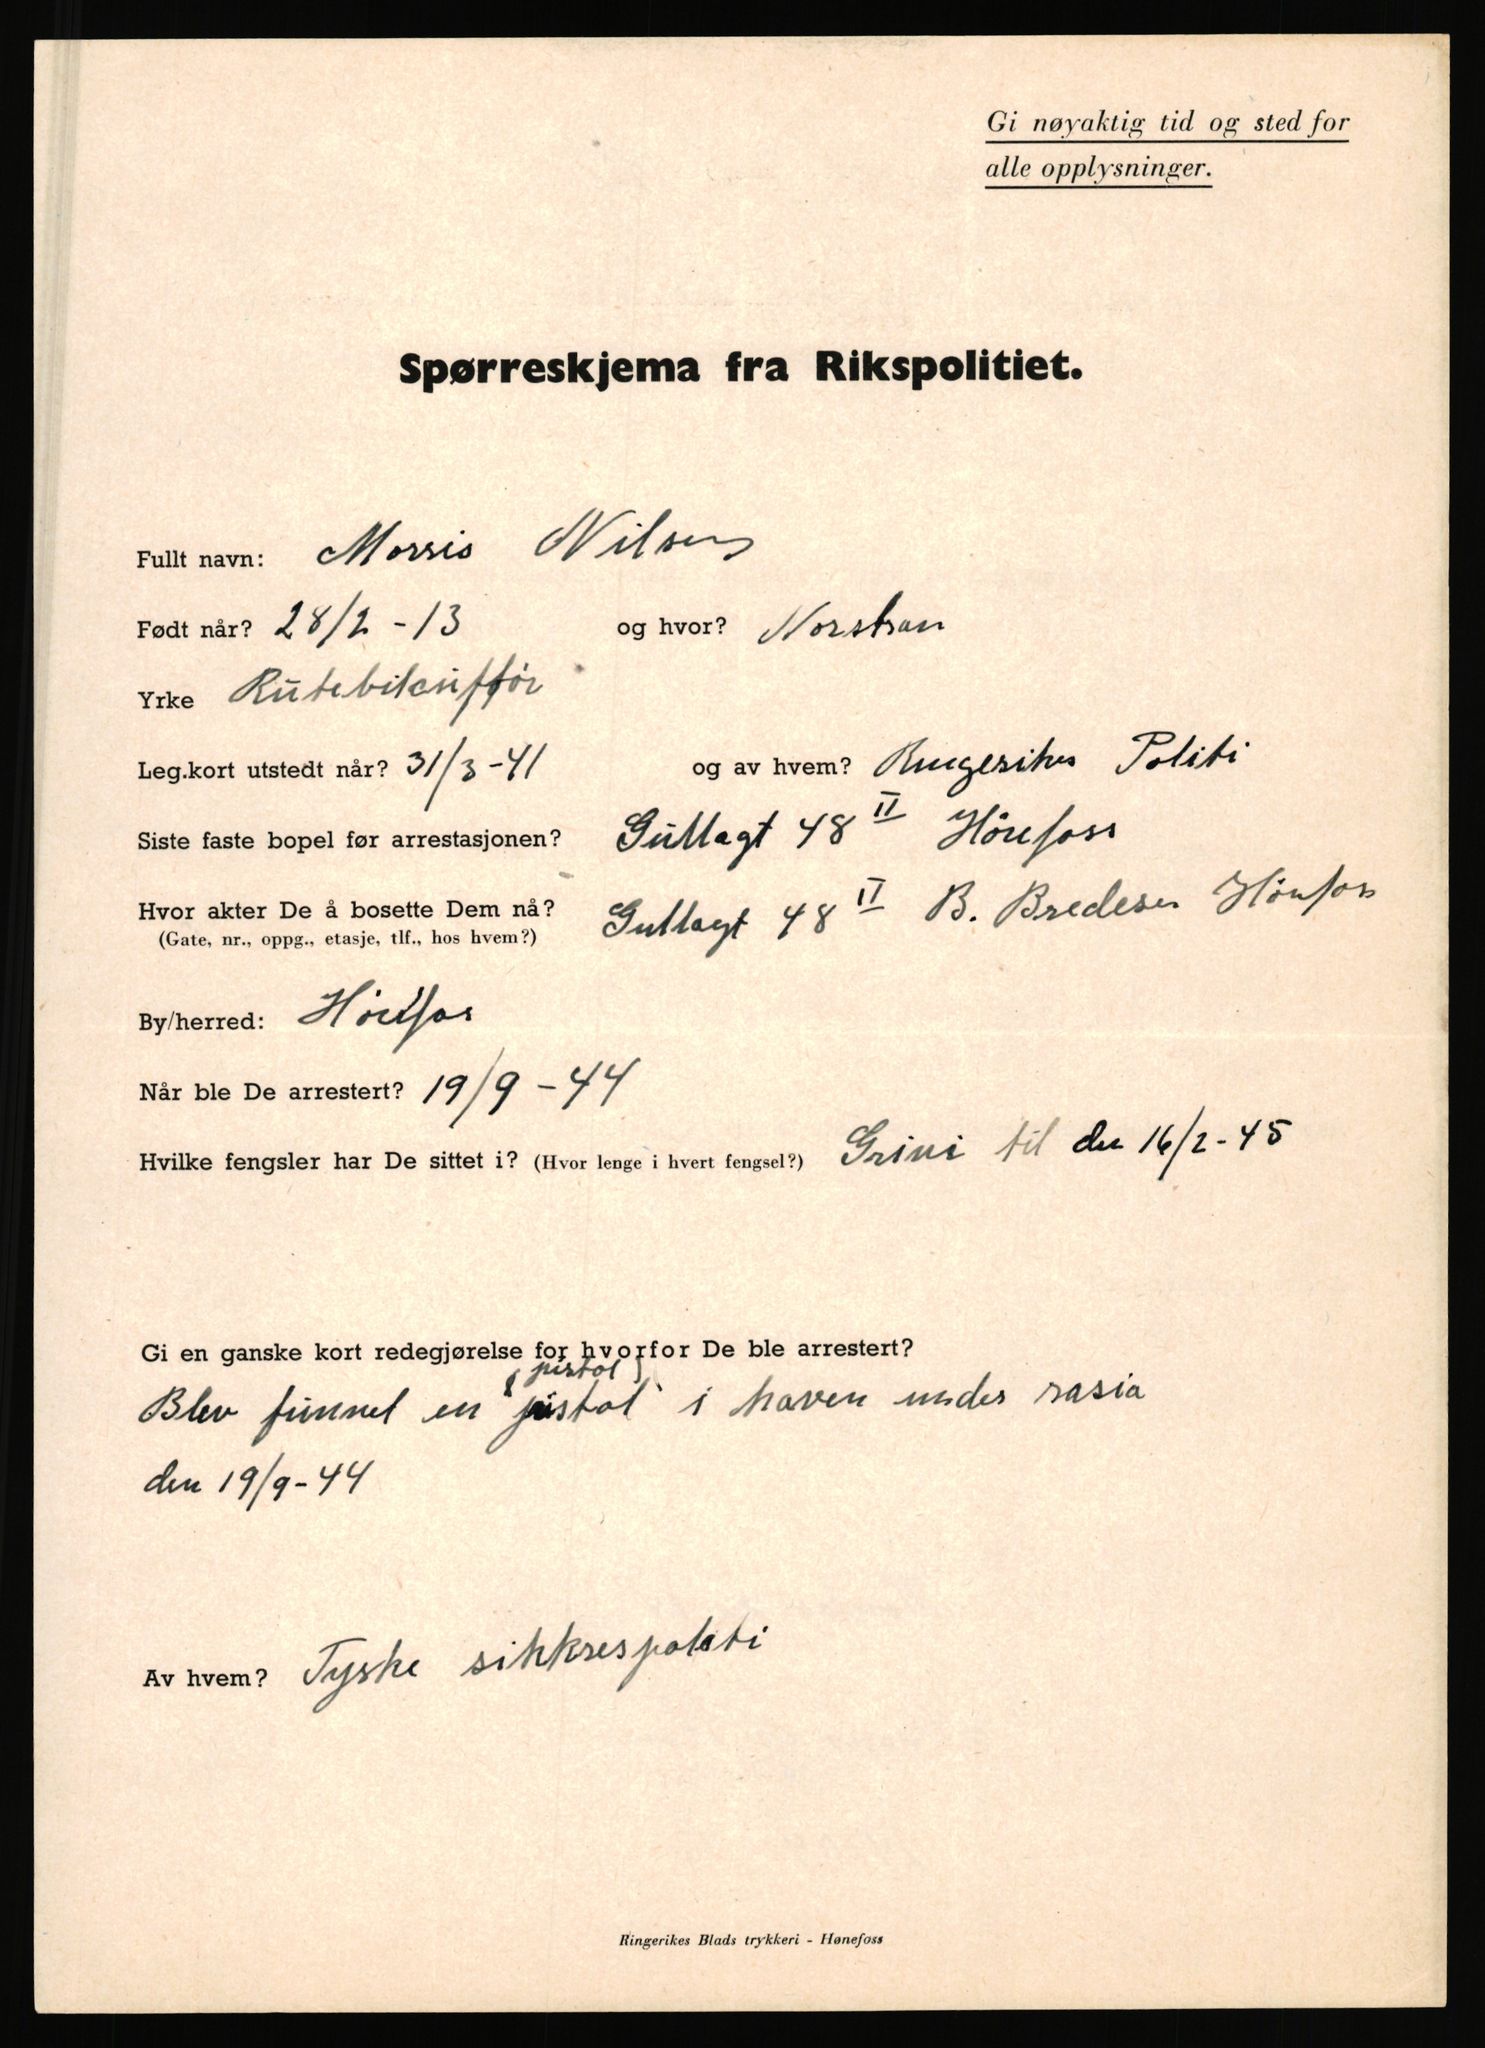 Gi nøyaktig tid og sted for
alle opplysninger.
Spørreskjema fra Rikspolitiet.
Fullt navn: Morris Nilsen
Født når? 28/2 - 13 og hvor? Norstran
Yrke Rutebilsjåffør
Leg.kort utstedt når? 31/3 - 41 og av hvem? Ringerikes Politi
Siste faste bopel før arrestasjonen? Gullagt 48 II Hönefoss
Hvor akter De å bosette Dem nå? Gullagt 48 II B. Bredesen Hönfoss
(Gate, nr., oppg., etasje, tlf., hos hvem?)
By/herred: Hönfoss
Når ble De arrestert? 19/9 - 44
Hvilke fengsler har De sittet i? (Hvor lenge i hvert fengsel?) Grini til den 16/2 - 45
Gi en ganske kort redegjørelse for hvorfor De ble arrestert?
(pistol)
Blev funnet en pistol i haven under rasia
den 19/9 - 44
Av hvem? Tyske sikkrespoliti
Ringerikes Blads trykkeri - Hønefoss